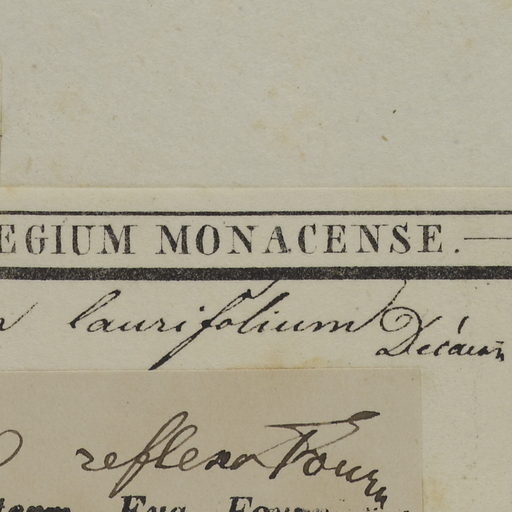 EGIUM MONACENSE.
laurifolium Décaisn
reflexa Fourn
Eug. Fourn